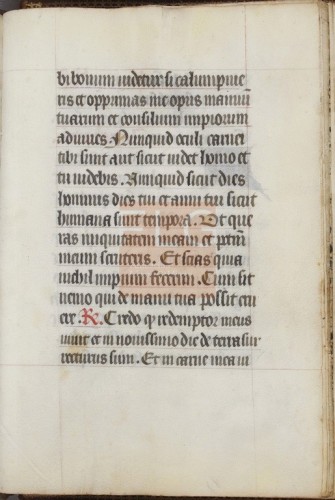 bi bonum videtur si calumpnie
ris et opprimas me opus manuū
tuarum et consilium impiorum
adiuves. Nunquid oculi carnei
tibi sunt aut sicut videt homo et
tu videbis. Nunquid sicut dies
hominis dies tui et anni tui sicut
humana sunt tempora. Ut que
ras iniquitatem meam et pctm̄
meum scruteris. Et scias quia
nichil impium fecerim. Cum sit
nemo qui de manu tua possit eru
ere. R. Credo q̄ redemptor meus
vivit et in novissimo die de terra sur
recturus sum. Et in carne mea vi